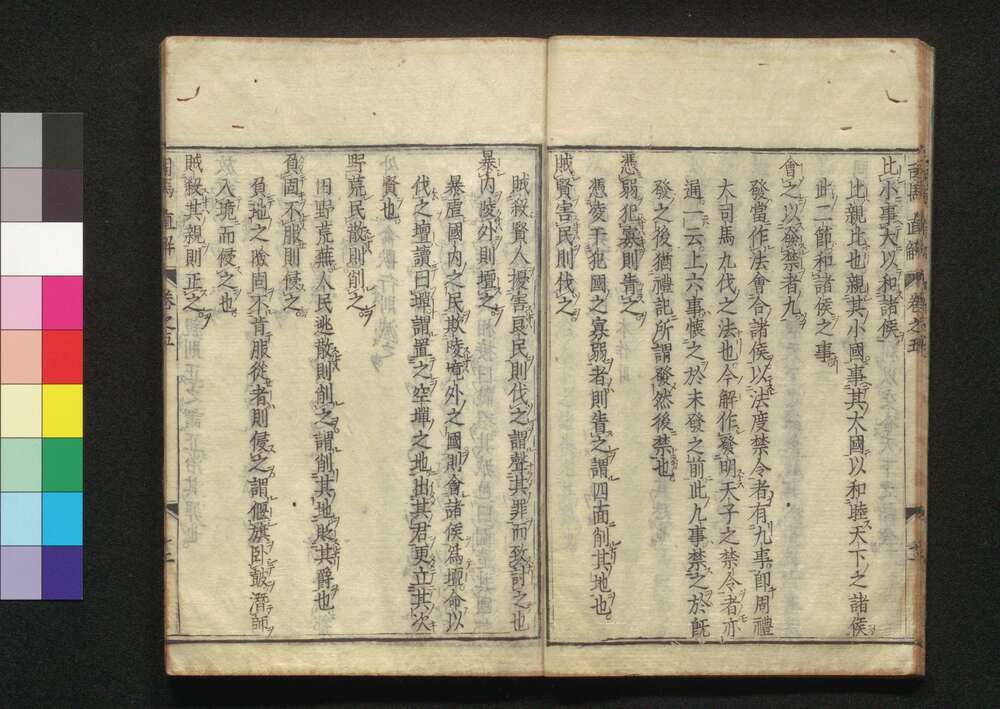 司馬直解 卷之五
比小事大以和諸侯
比親比也親其小國事其大國以和睦天下之諸侯
此二節和諸侯之事
會之以發禁者九
發當作法會合諸侯以法度禁令者有九事即周禮
大司馬九伐之法也今解作發明天子之禁令者亦
通一云上六事懷之於未發之前此九事禁之於既
發之後猶禮記所謂發然後禁也
憑弱犯寡則眚之
憑凌干犯國之寡弱者則眚之謂四面削其地也
賊賢害民則伐之
賊殺賢人擾害良民則伐之謂聲其罪而致討之也
暴内陵外則壇之
暴虐國内之民欺陵境外之國則會諸侯爲壇命以
伐之壇讀曰墠謂置之空墠之地出其君更立其次
賢也
野荒民散則削之
田野荒蕪人民逃散則削之謂削其地貶其爵也
負固不服則侵之
負地之險固不肯服從者則侵之謂偃旗臥鼓潛師
入境而侵之也
賊殺其親則正之
司馬直解 卷之五